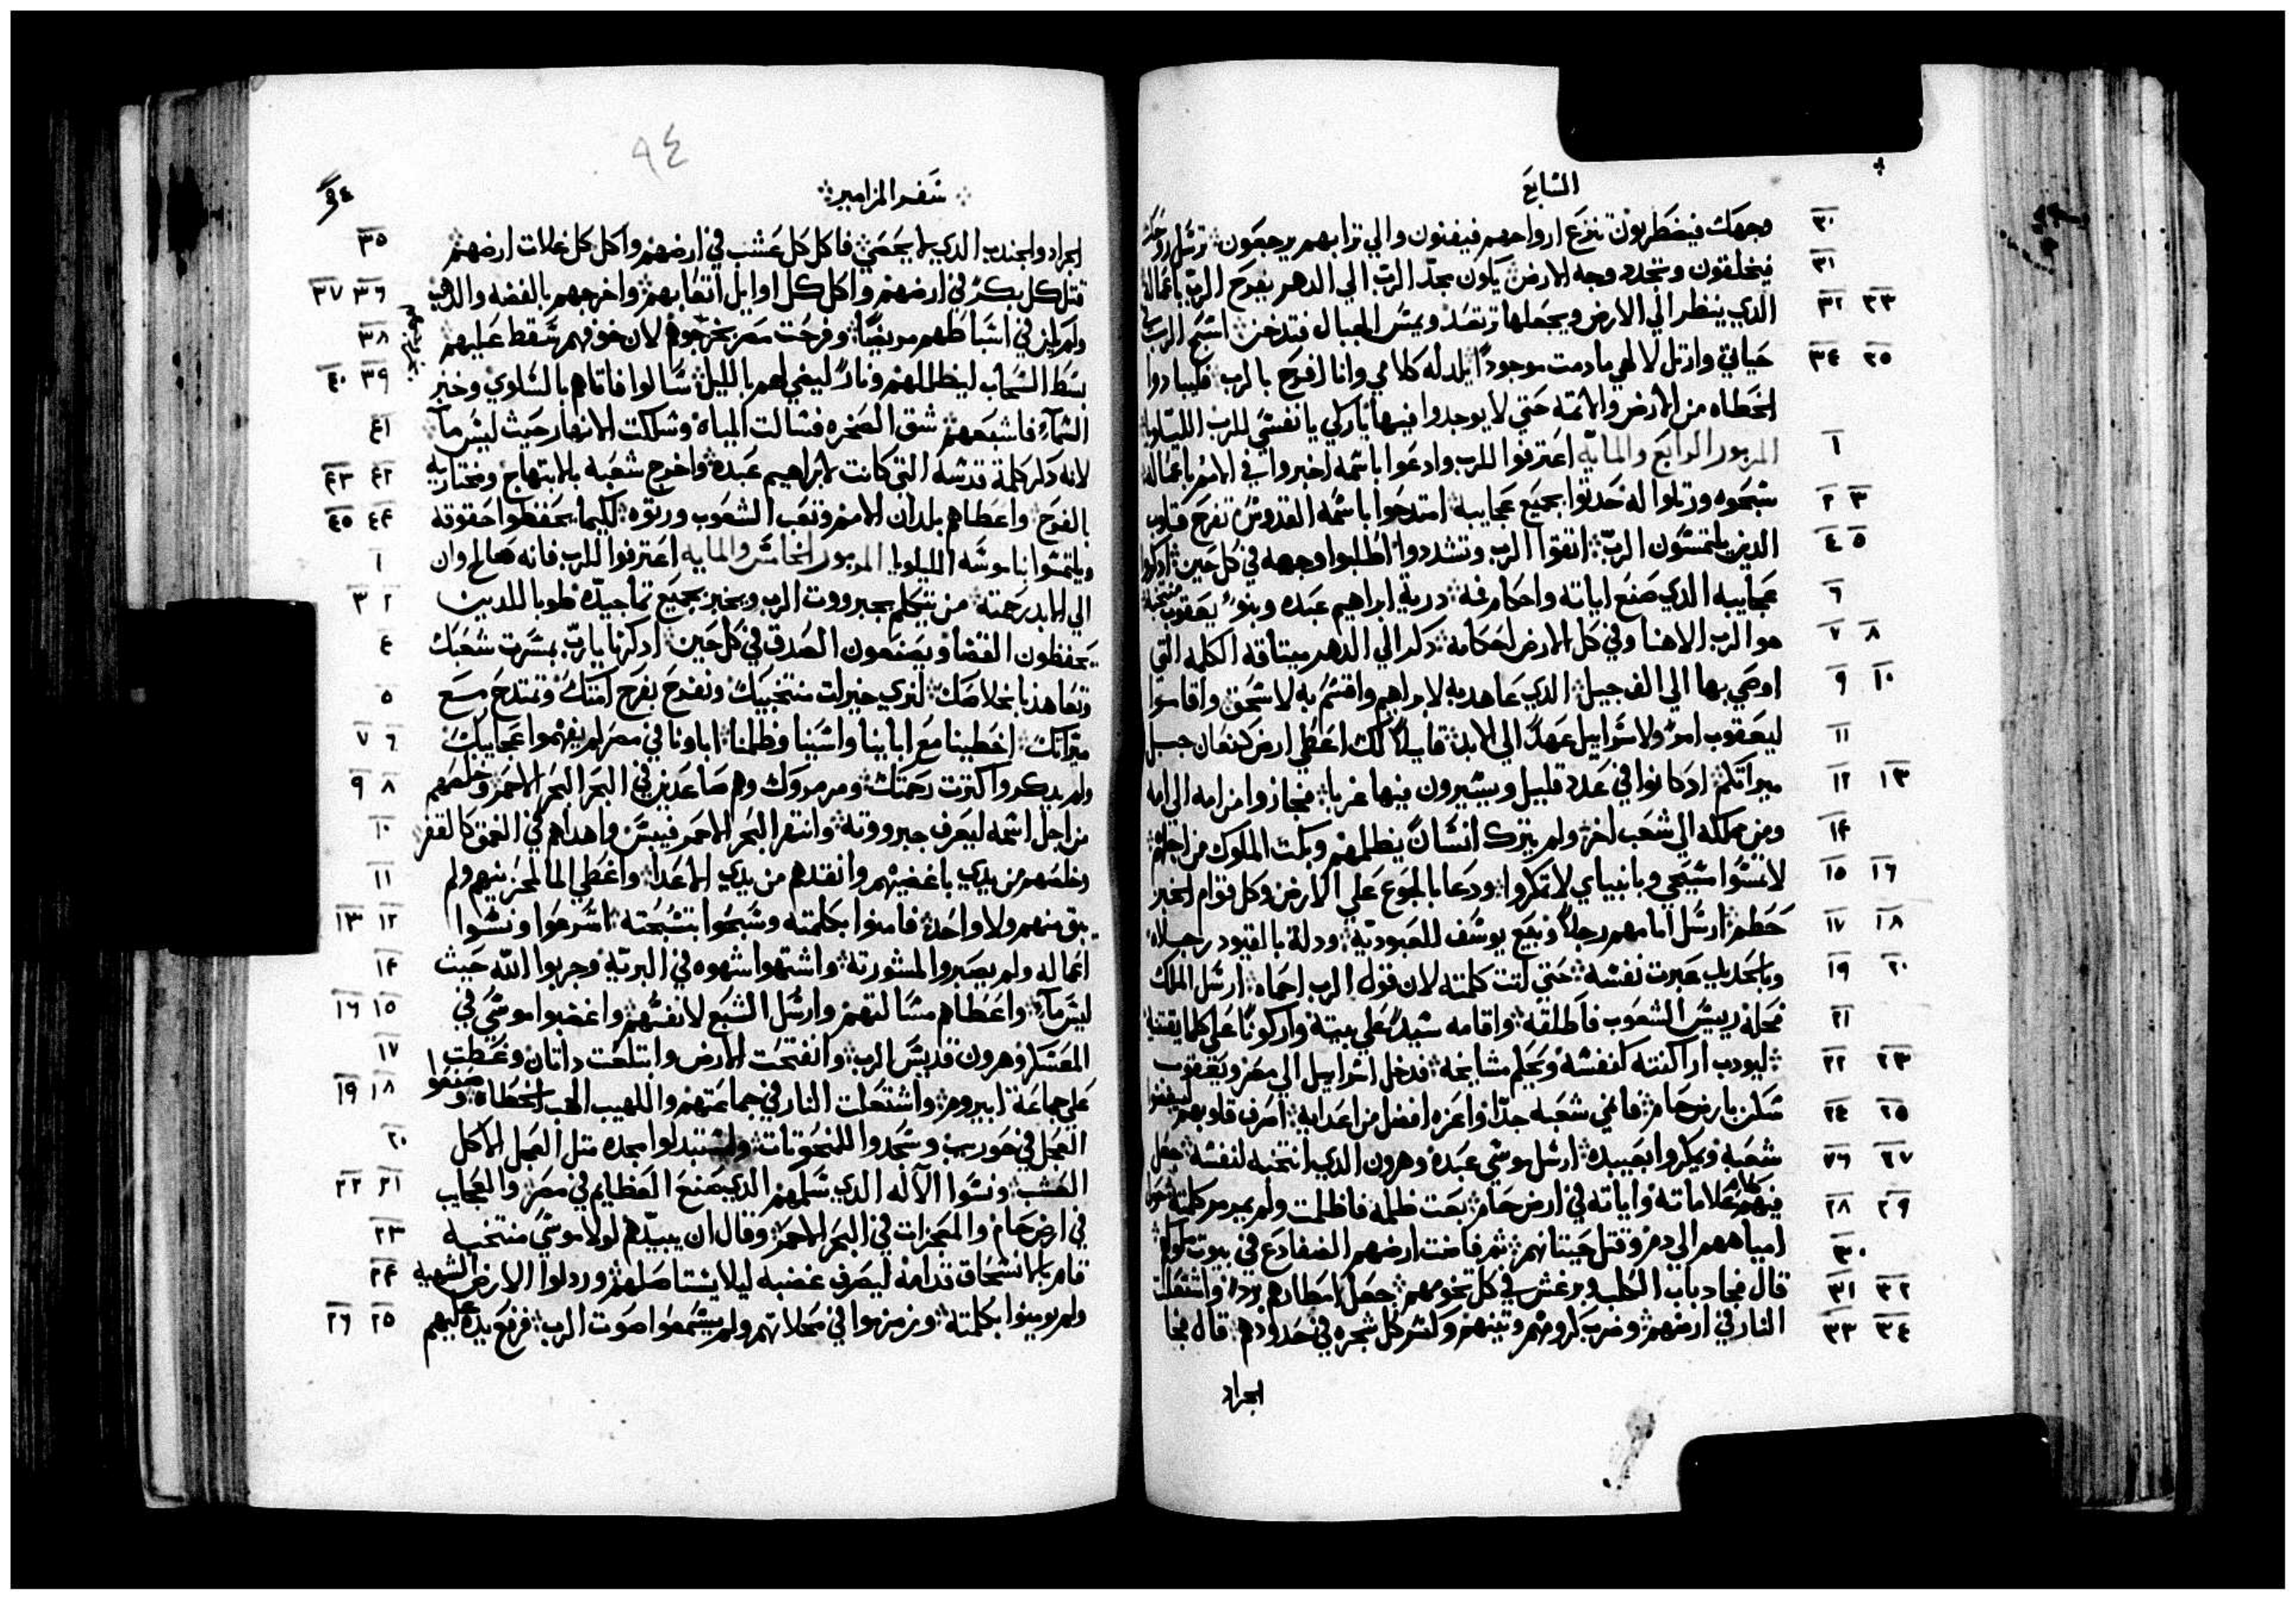 السابع
وجهك فيضطربون تنزع ارواحهم فيفنون والي ترابهم يرجعون ترسل روحك
فيخلقون وتجدد وجه الارض يكون مجد الرب الي الدهر يفرح الرب باعماله
الذي ينظر الي الارض ويجعلها ترتعد ويمس الجبال فتدخن اسبح الرب في
حياتي وارتل لالهي ما دمت موجودا يلد له كلامي وانا افرح بالرب فليبادوا
الخطاه من الارض والاثمه حتي لا يوجدوا فيها باركي يا نفسي للرب الليلويا
المزمور الرابع والمايه اعترفوا للرب وادعوا باسمه اخبروا في الامم باعماله
سبحوه ورتلوا له حدثوا بجميع عجايبه امتدحوا باسمه القدوس تفرح قلوب
الذين يلتمسون الرب اتقوا الرب وتشددوا اطلبوا وجهه في كل حين ادكروا
عجايبه الذي صنع اياته واحكام فمه درية ابراهيم عبده وبنو يعقوب منتخبيه
هو الرب الاهنا وفي كل الارض احكامه دكر الي الدهر ميتاقه الكلمه التي
اوصي بها الي الف جيل الذي عاهد به لابراهيم واقسم به لاسحق واقامها
ليعقوب امرا ولاسراييل عهدا الي الابد قايلا لك اعطي ارض كنعان حبل
ميراتكم ادكانوا في عدد قليل ويسيرون فيها غربا فجازوا من امه الي امه
ومن مملكه الي شعب اخر ولم يترك انسانا يظلمهم وبكت الملوك من اجلهم
لا تمسوا مسيحي وبانبياي لا تمكروا ودعا بالجوع علي الارض وكل قوام الخبز
حطم ارسل امامهم رجلا وبيع يوسف للعبودية ودلة بالقيود رجلاه
وبالحديد عبرت نفسه حتي اتت كلمته لان قول الرب احماه ارسل الملك
فحله رييس الشعوب فاطلقه واقامه سيدا علي بيته واركونا علي كلما يقتنيه
ليودب اراكنته كنفسه ويعلم مشايخه فدخل اسراييل الي مصر ويعقوب
سكن بارض حام فانمي شعبه جدا واعزه افضل من اعدايه اصرف قلوبهم ليبغضوا
شعبه ويمكروا بعبيده ارسل موسي عبده وهرون الدي انتخبه لنفسه جعل
فيهم علاماته واياته في ارض حام بعت ظلمه فاظلمت ولم يمرمر كلمته حول
امياههم الي دم وقتل حيتانهم ثم فاضت ارضهم الضفادع في بيوت ملوكهم
قال فجا دباب الكلب وبرغش في كل تخومهم جعل امطارهم بردا واشتعلت
النار في ارضهم وضرب كرومهم وتينهم وكسر كل شجره في حدودهم قال فجا
الجراد
سفر المزامير
٩٤
الجراد والجندب الدي لا يحصي فاكل كل عشب في ارضهم واكل كل غلات ارضهم
قتل كل بكر في ارضهم واكل كل اوايل اتعابهم واخرجهم بالفضه والدهب
ولم يكن في اسباطهم مريضا وفرحت مصر بخروجهم لان خوفهم سقط عليهم
بسط السحاب ليظللهم ونارا ليضي لهم بالليل سالوا فاتاهم بالسلوي وخبز
السماء فاشبعهم شق الصخره فسالت المياه وسلكت الانهار حيث ليس ماء
لانه دكر كلمة قدسه التي كانت لابراهيم عبده واخرج شعبه بالابتهاج ومختاريه
بالفرح واعطاهم بلدان الامم وتعب الشعوب ورتوه لكيما يحفظوا حقوقه
ويلتمسوا ناموسه الليلويا المزمور الخامس والمايه اعترفوا للرب فانه صالح وان
الي الابد رحمته من يتكلم بجبرووت الرب ويخبر بجميع تماجيده طوبا للدين
يحفظون القضا ويصنعون الصدق في كل حين ادكرنا يارب بمسرت شعبك
وتعاهدنا بخلاصك لنري خيرات منتخبيك ونفرح بفرح امتك ونمتدح مع
ميراتك اخطينا مع ابايينا واسينا وظلمنا اباونا في مصر لم يفهموا عجايبك
ولم يدكروا كترت رحمتك ومرمروك وهم صاعدين في البحر البحر الاحمر وخلصهم
من اجل اسمه ليعرف جبرووته وانتهر البحر الاحمر فيبس واهداهم في العمق كالقفر
وخلصهم من يدي باغضيهم وانقدهم من يدي الاعدا واغطي الما لمحزنيهم ولم
يبق منهم ولا واحد فامنوا بكلمته وسبحوا بتسبحته اسرعوا ونسوا
اعماله ولم يصبروا لمشورته واشتهوا شهوه في البرية وجربوا الله حيث
ليس ماء واعطاهم مسالتهم وارسل الشبع لانفسهم واغضبوا موسي في
المعسكر وهرون قديس الرب وانفتحت الارض وابتلعت داتان وغطت
علي جماعة ابيروم واشتعلت النار في جماعتهم واللهيب الهب الخطاه وصنعوا
العجل في حوريب وسجدوا للمنحوتات واستبدلوا مجده متل العجل الاكل
العشب ونسوا الاله الدي سلمهم الدي صنع العظايم في مصر والعجايب
في ارض حام والمعجزات في البحر الاحمر وقال ان يبيدهم لولا موسي منتخبه
قام بالانسحاق قدامه ليصرف غضبه ليلا يستاصلهم وردلوا الارض الشهيه
ولم يومنوا بكلمته وتزمزموا في محلاتهم ولم يسمعوا صوت الرب فرفع يده عليهم